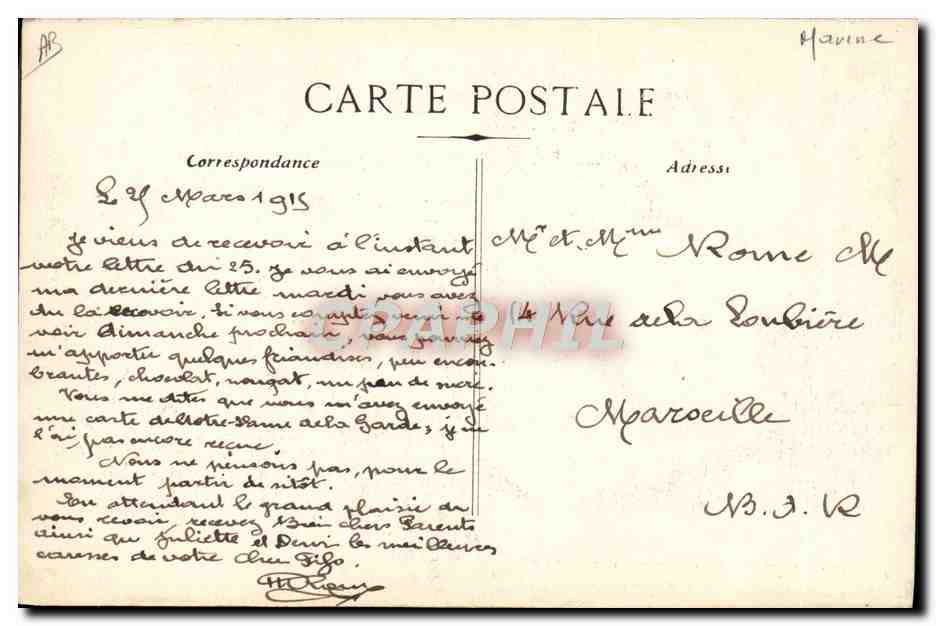 AB
Marine
CARTE POSTALE
Correspondance
Adresse
Le 25 Mars 1915
Je viens de recevoir à l'instant
votre lettre du 25. Je vous ai envoyé
ma dernière lettre mardi vous avez
du la recevoir. Si vous comptez venir me
voir dimanche prochain, vous pourrez
m'apporter quelques friandises, peu encom-
brantes, chocolat, nougat, un peu de sucre.
Vous me dites que vous m'avez envoyé
une carte de Notre-Dame de la Garde, je ne
l'ai pas encore reçue.
Nous ne pensons pas, pour le
moment partir de sitôt.
En attendant le grand plaisir de
vous revoir, recevez Bien chers Parents
ainsi que Juliette et Denis les meilleures
caresses de votre cher Fifo.
Mr et Mme Rome M
14 Rue de la Loubière
Marseille
B. d. R
CPAPHIL